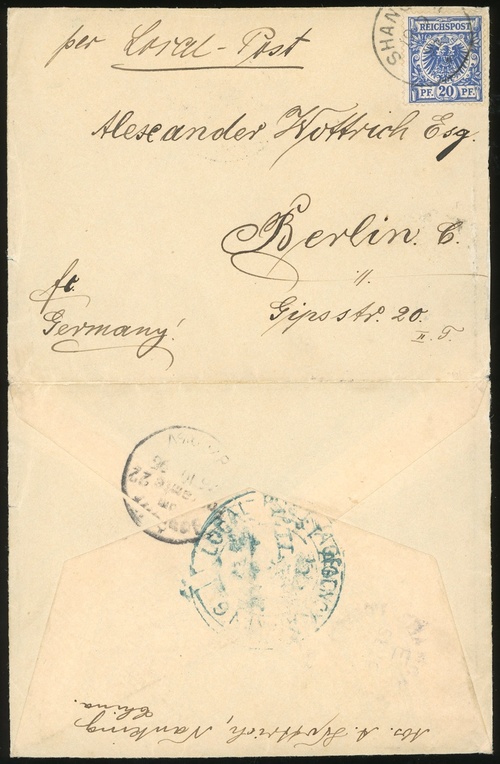 per Local-Post
SHAN
REICHSPOST
PF. 20 PF.
Alexander Wottrich Esq.
Berlin. C.
Gipsstr. 20
II. T.
fr.
Germany!
LOCAL POSTAL AGENCY
Abs. A. Wottrich, Nanking
China.